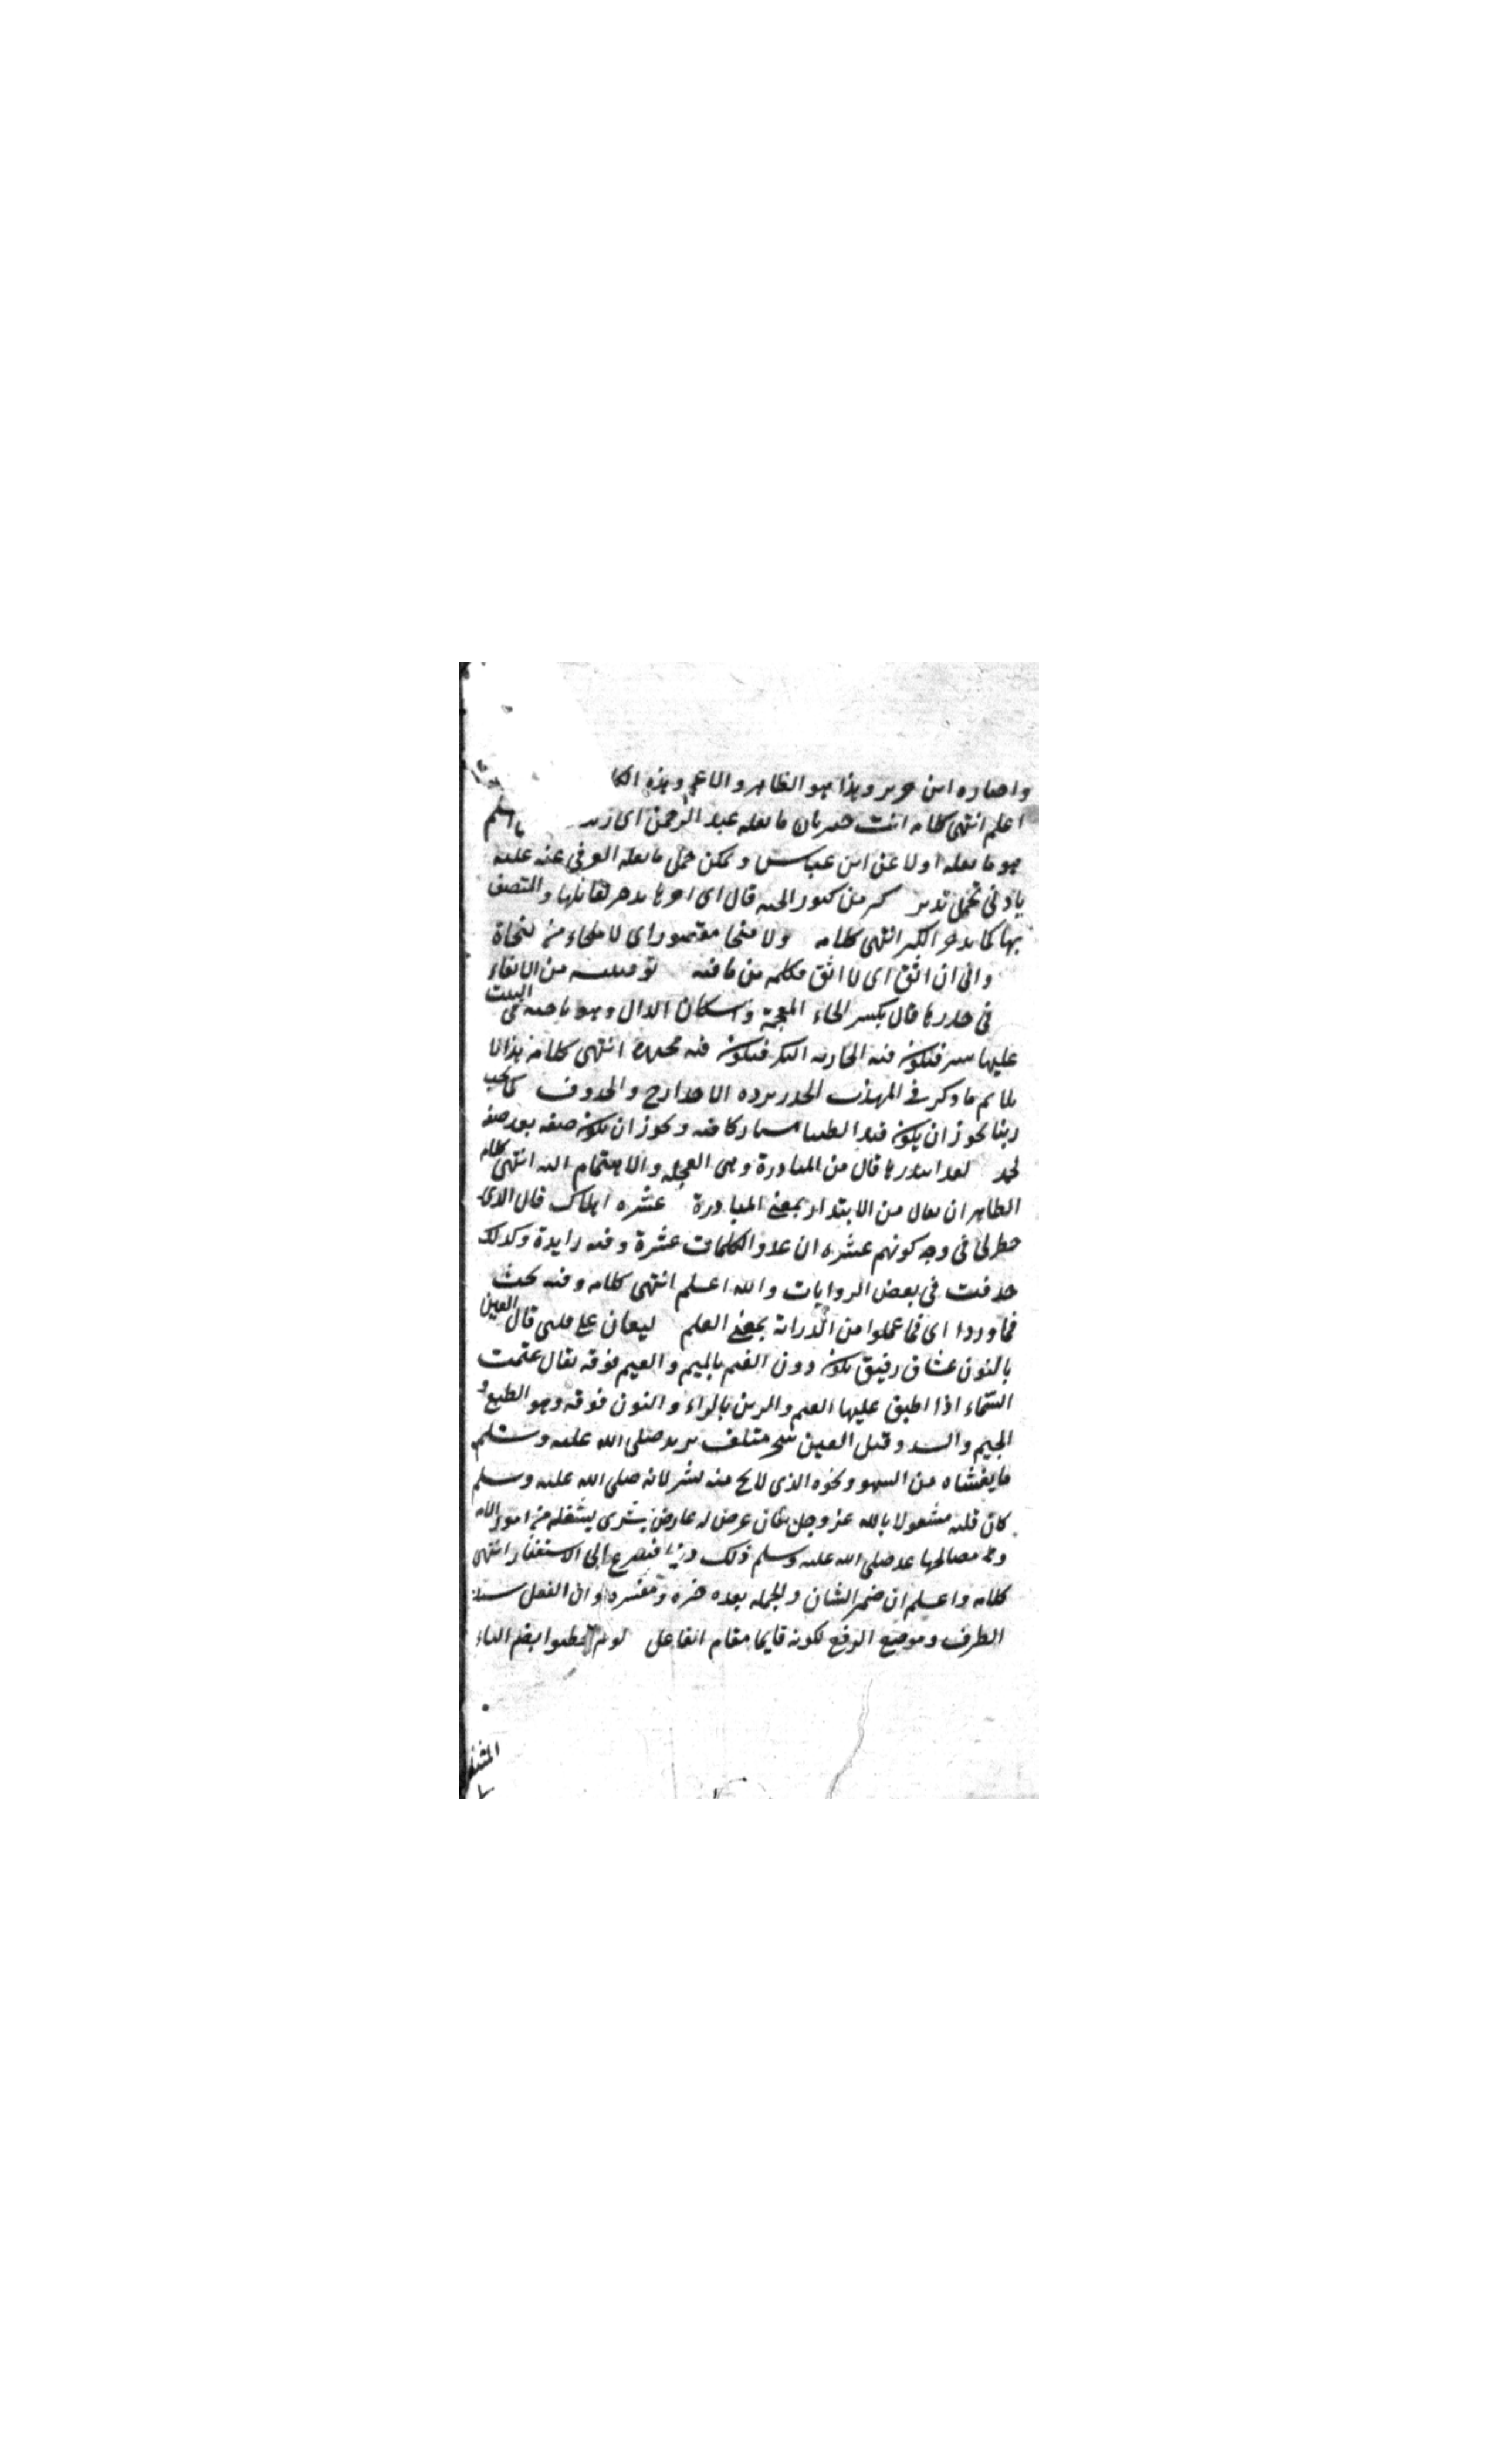 واختاره ابن جرير وهذا هو الظاهر والاعم وهذه الكا
اعلم انتهى كلامه انت خبير بان ما نقله عبد الرحمن اى زيد اسلم
هو ما نقله اولا عن ابن عباس ويمكن حمل ما نقله العوفى عنه عليه
بادنى تحمل تدبر كنز من كنوز الجنة قال اى اجرها يدخر لقائلها والمتصف
بها كما يدخر الكنز انتهى كلامه ولا منجا مقصور اى لا ملجاء من لنجاة
وانى ان اثق اى لا اثق فكلمه من ما فيه توفينيه من الايفاء
فى خدرها قال بكسر الخاء المعجمة واسكان الدال وهو ناحية فى البيت
عليها ستر فيكون فيه الجارية البكر فيكون فيه مخدرة انتهى كلامه هذا لا
يلايم ما ذكر فى المهذب الخدر پرده الاخدار ج والخدوف كما يحب
ربنا يجوز ان يكون قيدا لطيبا مباركا فيه ويجوز ان يكون صفه بعد صفه
لحمد لقد ابتدرها قال من المبادرة وهى العجلة والاهتمام اليه انتهى كلامه
الظاهر ان يقال من الابتدار بمعنى المبادرة عشرة املاك قال الذى
خطر لى فى وجه كونهم عشرة ان عدد الكلمات عشرة وفيه زايدة وكذلك
حذفت فى بعض الروايات والله اعلم انتهى كلامه وفيه بحث
فما دروا اى فما عملوا من الدراية بمعنى العلم ليغان على قلبى قال الغين
بالنون غشاق رقيق يكون دون الغيم بالميم والغيم فوقه يقال غتمت
السماء اذا اطبق عليها الغيم والرين بالراء والنون فوقه وهو الطبع و
الجيم والسد وقيل الغين شجر ملتف يريد صلى الله عليه وسلم
ما يغشاه من السهو ونحوه الذى لا يخ منه بشر لانه صلى الله عليه وسلم
كان قلبه مشغولا بالله عز وجل فان عرض له عارض بشرى يشغله من امور الامه
و مصالحها عد صلى الله عليه وسلم ذلك ذنبا فيضرع الى الاستغفار انتهى
كلامه واعلم ان ضمير الشان والجملة بعده خبره ومفسره وان الفعل مسند
الظرف وموضع الرفع لكونه قايما مقام الفاعل لو لم تخطئوا بضم التاء